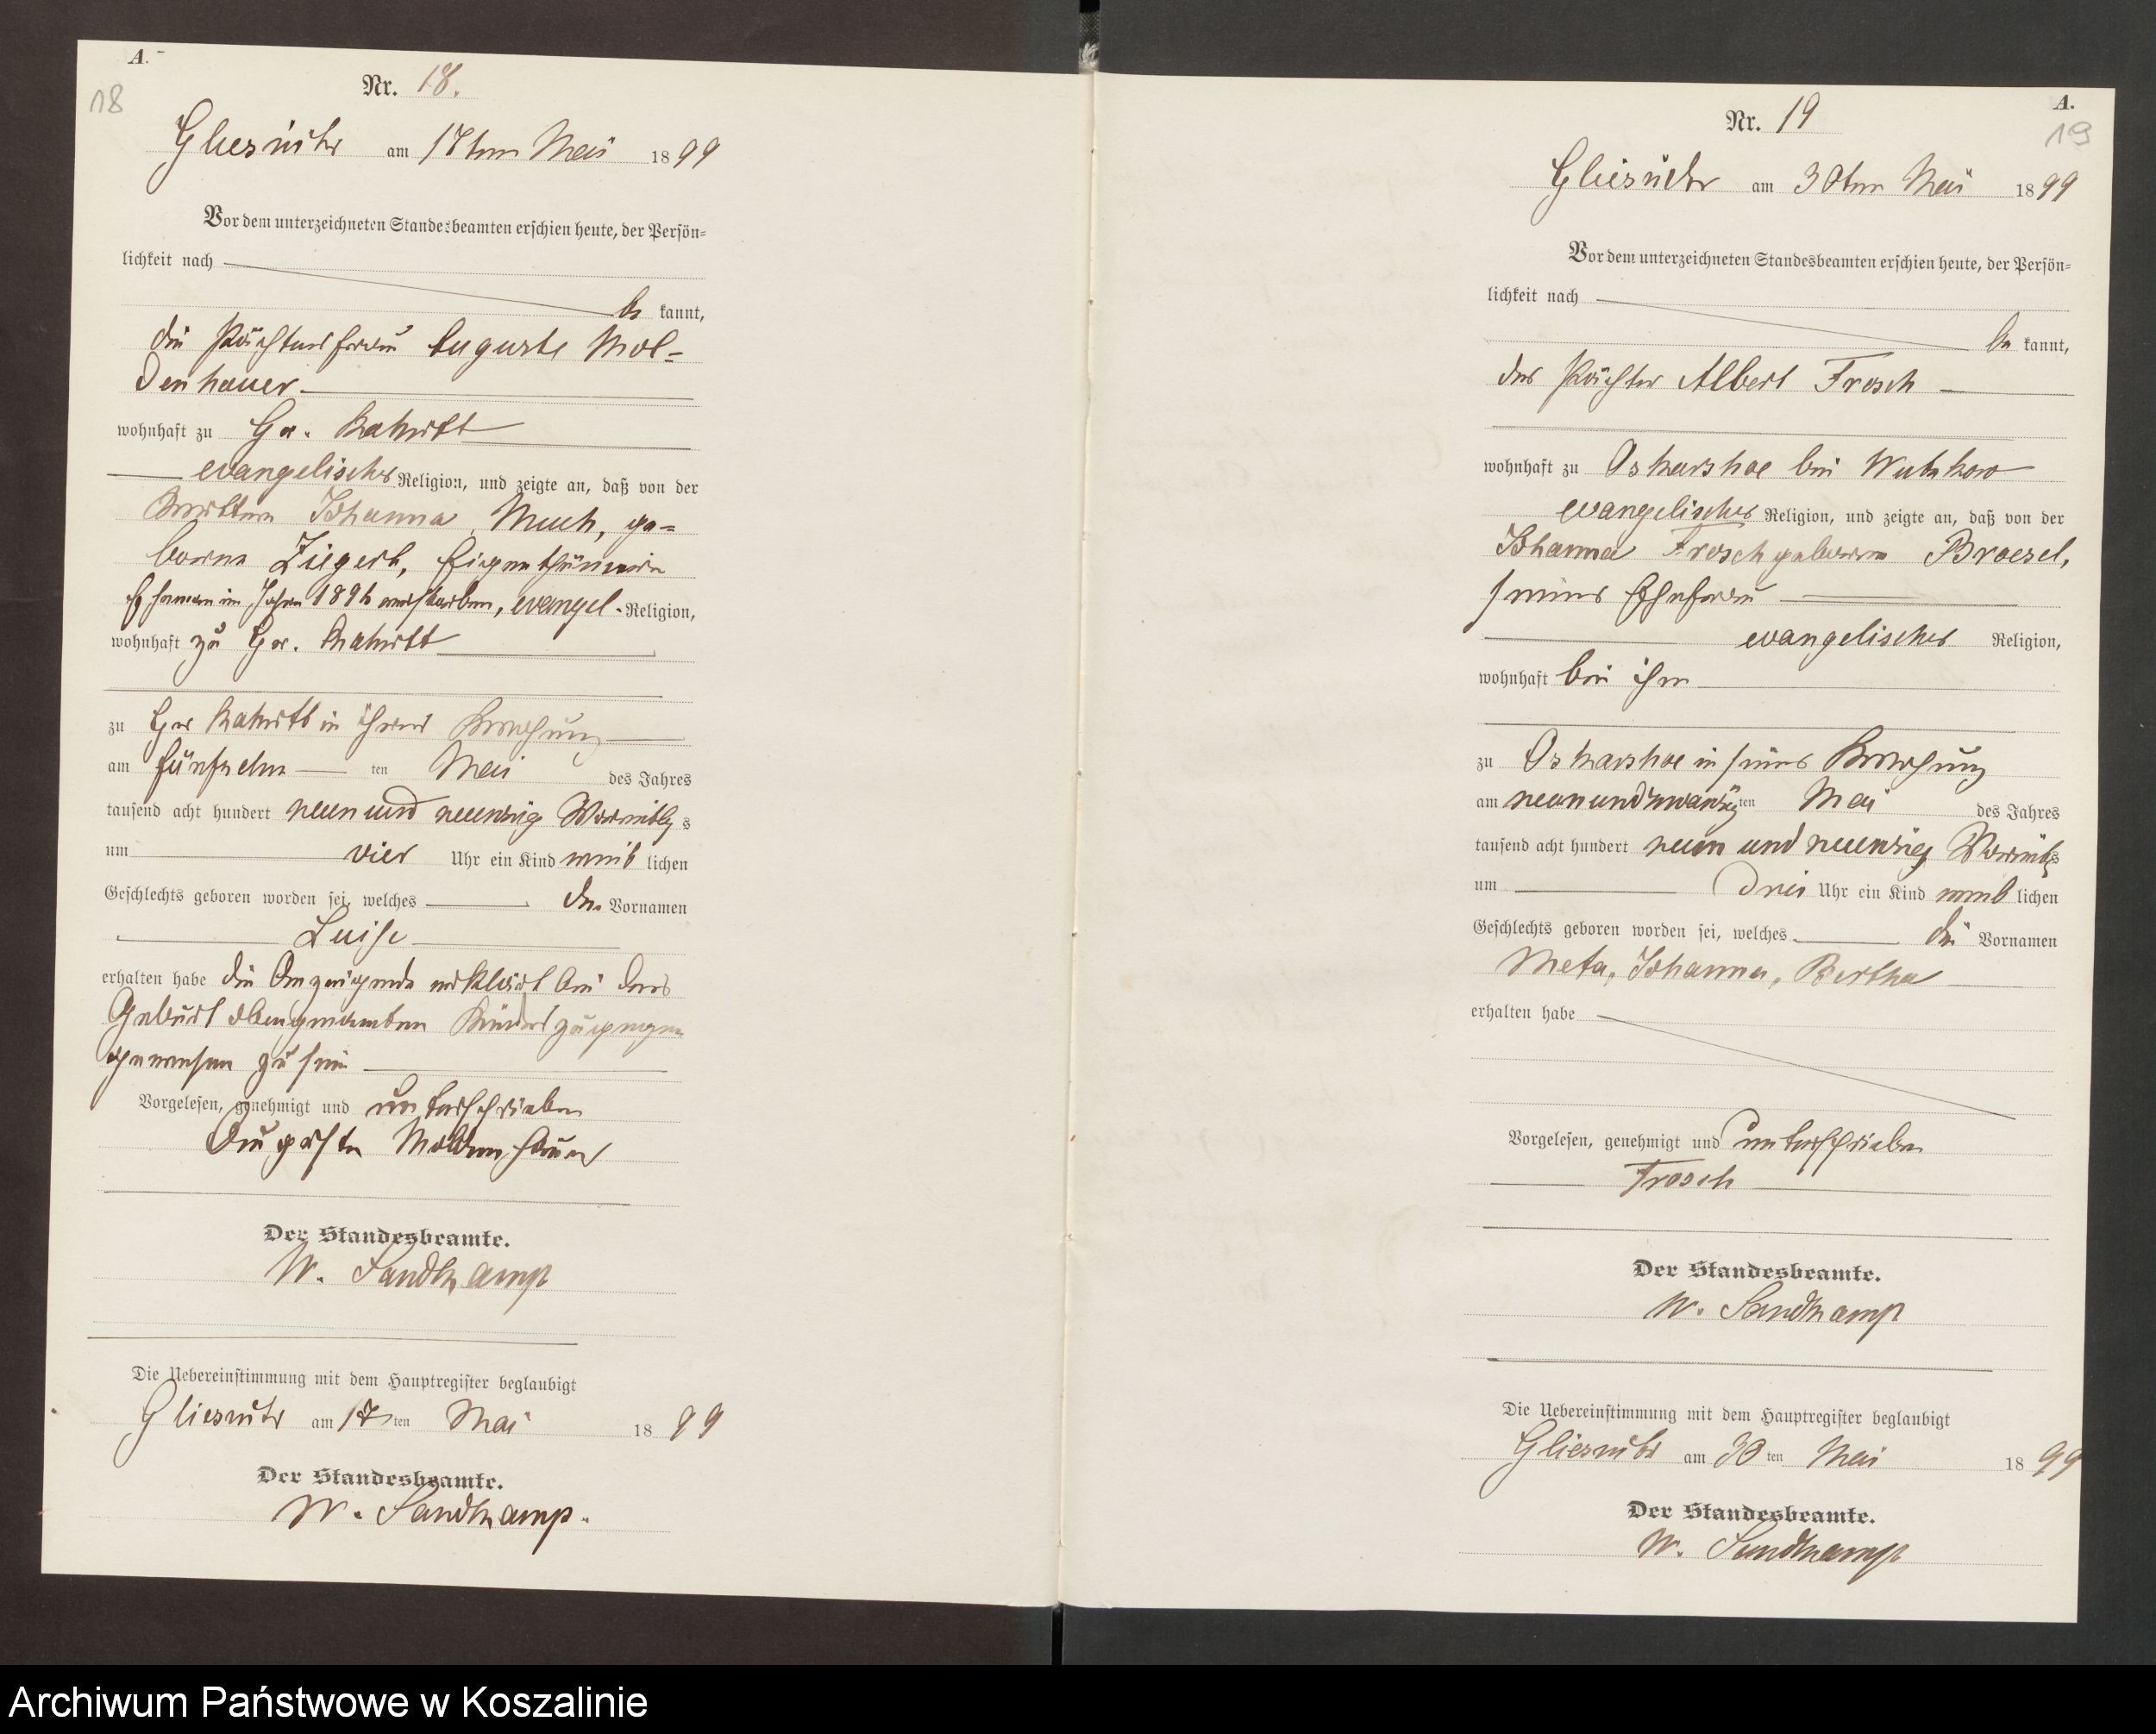 A.
18
Nr. 18.
Gliesnitz am 17ten Mai 1899
Vor dem unterzeichneten Standesbeamten erschien heute, der Persön=
lichkeit nach
be kannt,
die Pächterfrau Auguste Mol=
denhauer
wohnhaft zu Gr.
evangelischer Religion, und zeigte an, daß von der
Johanna Much, ge=
borene Ziegert, Eigenthümerin
Ehemann im Jahre 1896 verstorben, evangel. Religion,
wohnhaft zu Gr.
zu Gr in ihrer Wohnung
am fünfzehn ten Mai des Jahres
tausend acht hundert neun und neunzig Vormittags
um vier Uhr ein Kind weib lichen
Geschlechts geboren worden sei, welches den Vornamen
Luise
erhalten habe die Anzeigende erklärt bei der
Geburt obengenannten Kindes zugegen
gewesen zu sein
Vorgelesen, genehmigt und unterschrieben
Auguste Moldenhauer
Der Standesbeamte.
W. Sandkamp
Die Uebereinstimmung mit dem Hauptregister beglaubigt
Gliesnitz am 17ten Mai 1899
Der Standesbeamte.
W. Sandkamp.
A.
19
Nr. 19
Gliesnitz am 30ten Mai 1899
Vor dem unterzeichneten Standesbeamten erschien heute, der Persön=
lichkeit nach
be kannt,
der Pächter Albert Frosch
wohnhaft zu Oskarshoe bei Wutzkow
evangelischer Religion, und zeigte an, daß von der
Johanna Frosch geborene Broesel,
seiner Ehefrau
evangelischer Religion,
wohnhaft bei ihm
zu Oskarshoe in seiner Wohnung
am neunundzwanzig ten Mai des Jahres
tausend acht hundert neun und neunzig Vormittags
um drei Uhr ein Kind weib lichen
Geschlechts geboren worden sei, welches die Vornamen
Meta, Johanna, Bertha
erhalten habe
Vorgelesen, genehmigt und unterschrieben
Frosch
Der Standesbeamte.
W. Sandkamp
Die Uebereinstimmung mit dem Hauptregister beglaubigt
Gliesnitz am 30ten Mai 1899
Der Standesbeamte.
W. Sandkamp
Archiwum Państwowe w Koszalinie